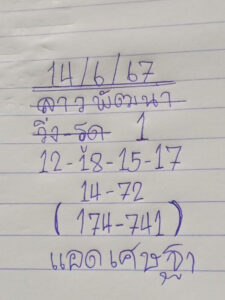 14/6/67
ลาวพัฒนา
วิ่ง-รูด 1
12-18-15-17
14-72
(174-741)
แอดเศษฐา